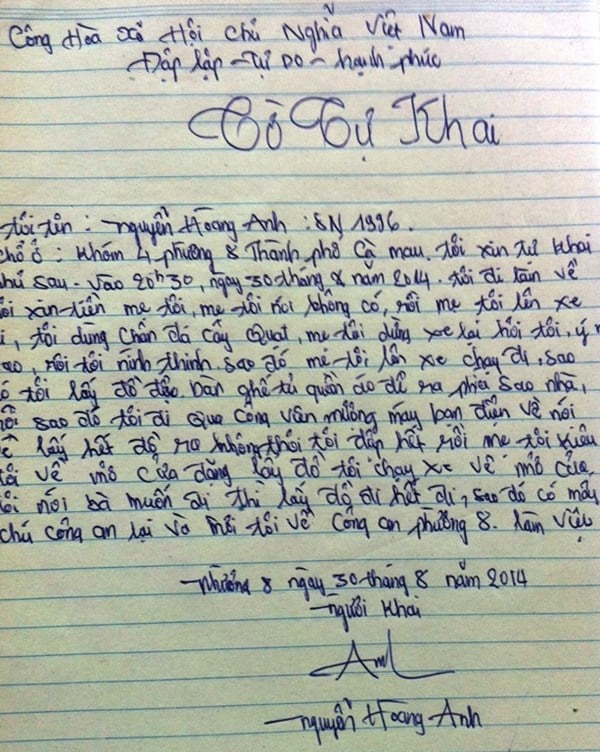 Công Hoà Xã Hội Chủ Nghĩa Việt Nam
Độp lập - Tự Do - hạnh phúc
Tờ Tự Khai
tôi tên : nguyễn Hoàng Anh : SN 1996.
chổ ở : Khóm 4 phường 8 Thành phố Cà mau. tôi xin tự khai
như sau. vào 20h30, ngày 30 tháng 8 năm 2014. tôi đi tắn về
tôi xin tiền mẹ tôi, mẹ tôi nói không có, rồi mẹ tôi lên xe
đi, tôi dùng chân đá cây quạt, mẹ tôi dừng xe lại hỏi tôi, ý mày
sao, rồi tôi nính thinh. sao đó mẹ tôi lên xe chạy đi, sao
đó tôi lấy đồ đạo. bàn ghế tủ quần áo để ra phía sao nhà,
rồi sao đó tôi đi qua công vân mường máy bạn điện về nói
về lấy hết đồ ra không thôi tôi đập hết rồi mẹ tôi kiêu
tôi về mở cửa đăng lấy đồ tôi chạy xe về mở cửa,
tôi nói bà muốn đi thì lấy đồ đi hết đi, sao đó có mấy
chú công an lại và mời tôi về công an phường 8. làm việc
phường 8 ngày 30 tháng 8 năm 2014
người khai
Anh
nguyễn Hoang Anh